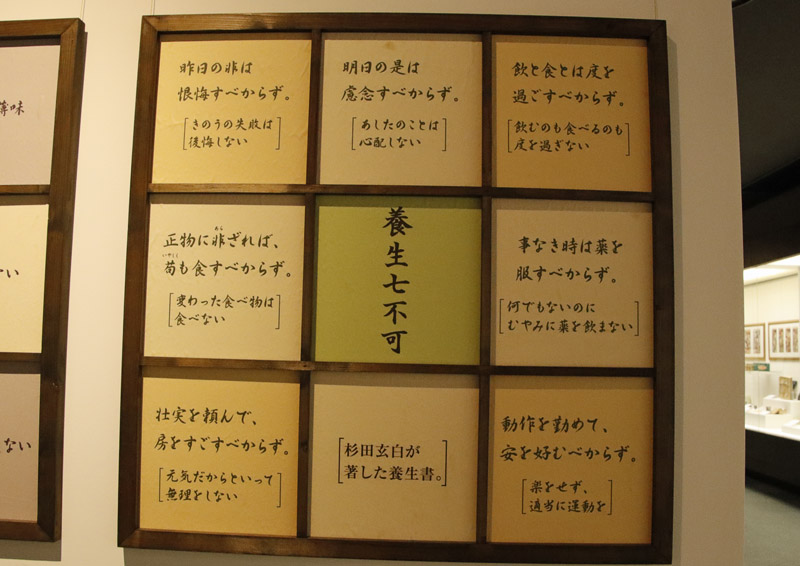 昨日の非は
恨悔すべからず。
[きのうの失敗は
後悔しない]
明日の是は
慮念すべからず。
[あしたのことは
心配しない]
飲と食とは度を
過ごすべからず。
[飲むのも食べるのも
度を過ぎない]
正物に非ざれば、
あら
苟も食すべからず。
いやしく
[変わった食べ物は
食べない]
養生七不可
事なき時は薬を
服すべからず。
[何でもないのに
むやみに薬を飲まない]
壮実を頼んで、
房をすごすべからず。
[元気だからといって
無理をしない]
[杉田玄白が
著した養生書。]
動作を勤めて、
安を好むべからず。
[楽をせず、
適当に運動を]
薄味
い
ない